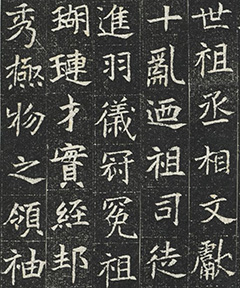 世祖丞相文獻
十亂迺祖司徒
進羽儀冠冕祖
瑚璉才實經邦
秀極物之領袖